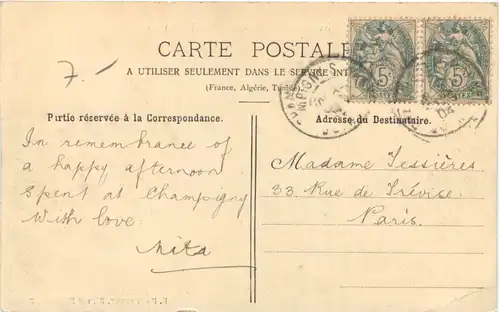 CARTE POSTALE
7.-
A UTILISER SEULEMENT DANS LE SERVICE
(France, Algérie, Tunisie)
Partie réservée à la Correspondance.
Adresse du Destinataire.
In remembrance of
a happy afternoon
spent at Champigny
With love
Nita
Madame Tessières
33 Rue de Trévise.
Paris.
5
5
04